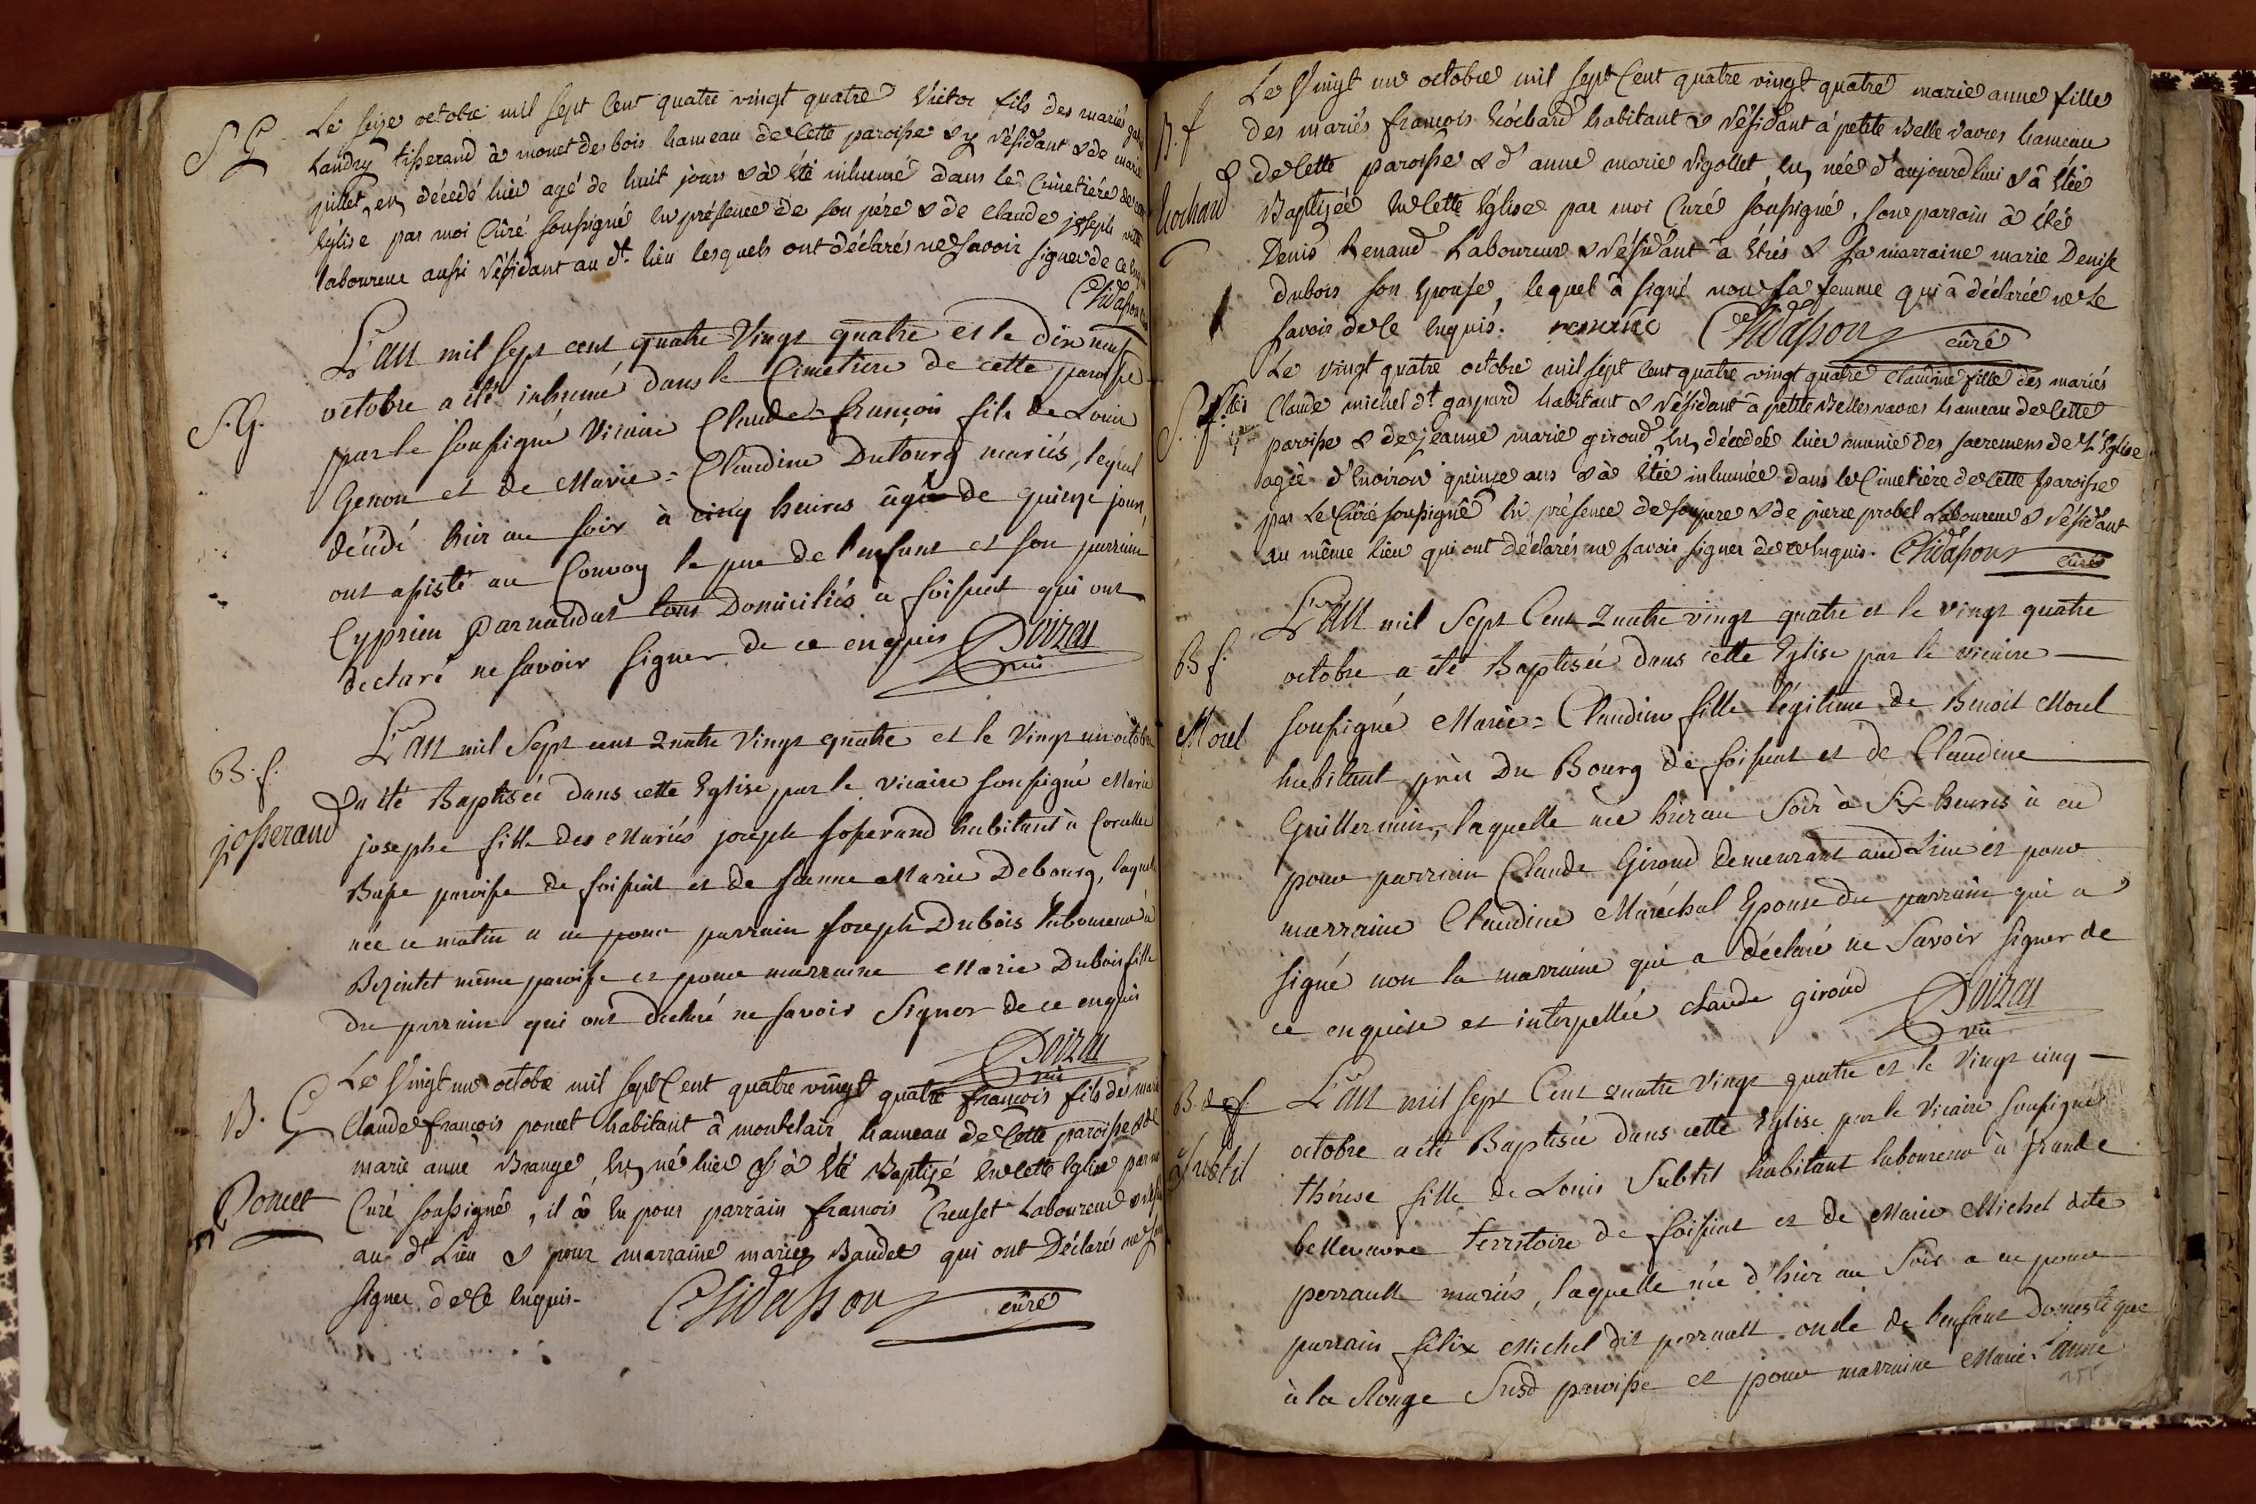 S G
Le seize octobre mil sept Cent quatre vingt quatre Victor fils des mariés
Landry tisserand à monet des bois hameau de Cette paroisse & y résidant & de marie
juillet, en, décédé hier agé de huit jours & à été inhumé dans le Cimetière de cette
église par moi Curé soussigné en présence de son père & de claude joseph
laboureur aussi résidant au dt. lieu lesquels ont déclarés ne savoir signer de ce enquis
Chidasson
S. G.
L'an mil sept cent quatre Vingt quatre et le dix neuf
octobre a été inhumé dans le Cimetiere de cette paroisse
par le soussigné Vicaire Claude-françois fils de Louis
Genon et de Marie=Claudine Dutourg mariés, lequel
décédé hier au soir à cinq heures âgé de quinze jours,
ont assisté au Convoy le pere de l'enfant et son parrain
Cyprien Parnaudat tous Domiciliés à foissiat qui ont
declaré ne savoir signer de ce enquis Doizat
vic
B. f.
josserand
L'an mil Sept cent quatre Vingt quatre et le Vingt un octobre
a été Baptisée dans cette Eglise par le Vicaire soussigné Marie
josephe fille des Mariés joseph josserand habitant à Corcelles
Basse paroisse de foissiat et de jeanne Marie Debourg, laquelle
née ce matin a eu pour parrain joseph Dubois laboureur à
Bezentet même paroisse et pour marraine Marie Dubois fille
du parrain qui ont declaré ne savoir Signer de ce enquis
Doizat
vic
B. G
Poncet
Le Vingt un octobre mil sept Cent quatre vingt quatre françois fils des mariés
Claude françois poncet habitant à montclair hameau de Cette paroisse & de
marie anne Brange, en, né hier & à été Baptizé en cette église par moi
Curé soussigné, il a eu pour parrain françois Creuset Laboureur & résidant
au dt Lieu & pour marraine marie Baudet qui ont Déclarés ne savoir
signer de ce enquis.
Chidasson curé
B. f
Rochard
Le Vingt un octobre mil sept Cent quatre vingt quatre marie anne fille
des mariés françois Rochard habitant & résidant à petite Belle vavres hameau
& de Cette paroisse & d'anne marie Vigollet, en, née d'aujourd'hui & à étée
Baptizée en Cette église par moi Curé soussigné, son parrain à été
Denis Renaud Laboureur & résidant à Etrés & sa marraine marie Denise
dubois son épouse, lequel à signé non sa femme qui à déclarée ne le
savoir de ce enquis. renaud Chidasson curé
S. f.
Le vingt quatre octobre mil sept Cent quatre vingt quatre claudine fille des mariés
Claude michel dt. gaspard habitant & résidant à petite Belles vavres hameau de Cette
paroisse & de jeanne marie giroud, en, décédée hier munie des sacremens de L'Eglise
agée d'environ quinze ans & à étée inhumée dans le Cimetière de Cette paroisse
par Le Curé soussigné en présence de son pere & de pierre probel Laboureur & résidant
au même lieu qui ont déclarés ne savoir signer de ce enquis. Chidasson curé
B f.
Morel
L'an mil Sept Cent Quatre vingt quatre et le vingt quatre
octobre a été Baptisée dans cette Eglise par le vicaire
soussigné Marie=Claudine fille légitime de Benoit Morel
habitant près Du Bourg de foissiat et de Claudine
Guillermin, laquelle née hier au Soir à Six heures à eu
pour parrain Claude Giroud demeurant aud Lieu et pour
marraine Claudine Maréchal Epouse du parrain qui a
signé non la marraine qui a déclaré ne Savoir signer de
ce enquise et interpellée claude giroud Doizat
vic
B. f
Subtil
L'an mil sept Cent quatre Vingt quatre et le Vingt cinq
octobre a été Baptisée dans cette Eglise par le Vicaire soussigné
thérese fille de Louis Subtil habitant laboureur à grande
bellevavre territoire de foissiat et de Marie Michel dite
perrault mariés, laquelle née d'hier au Soir a eu pour
parrain félix Michel dit perrault oncle de l'enfant Domestique
à la Ronge Susd paroisse et pour marraine Marie-Anne